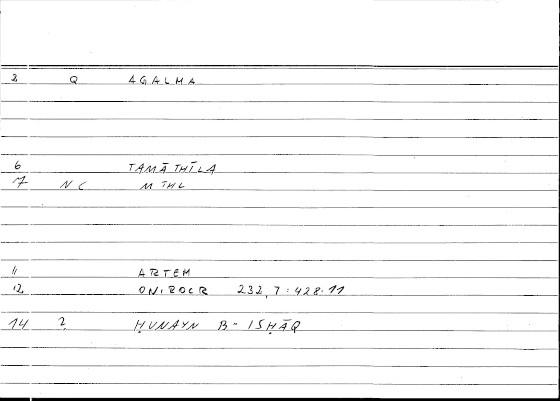 2 Q AGALMA
6 TAMĀTHĪLA
7 NC MTHL
11 ARTEM
12 ONIROCR 232,7:428.11
14 2 ḤUNAYN B-ISḤĀQ